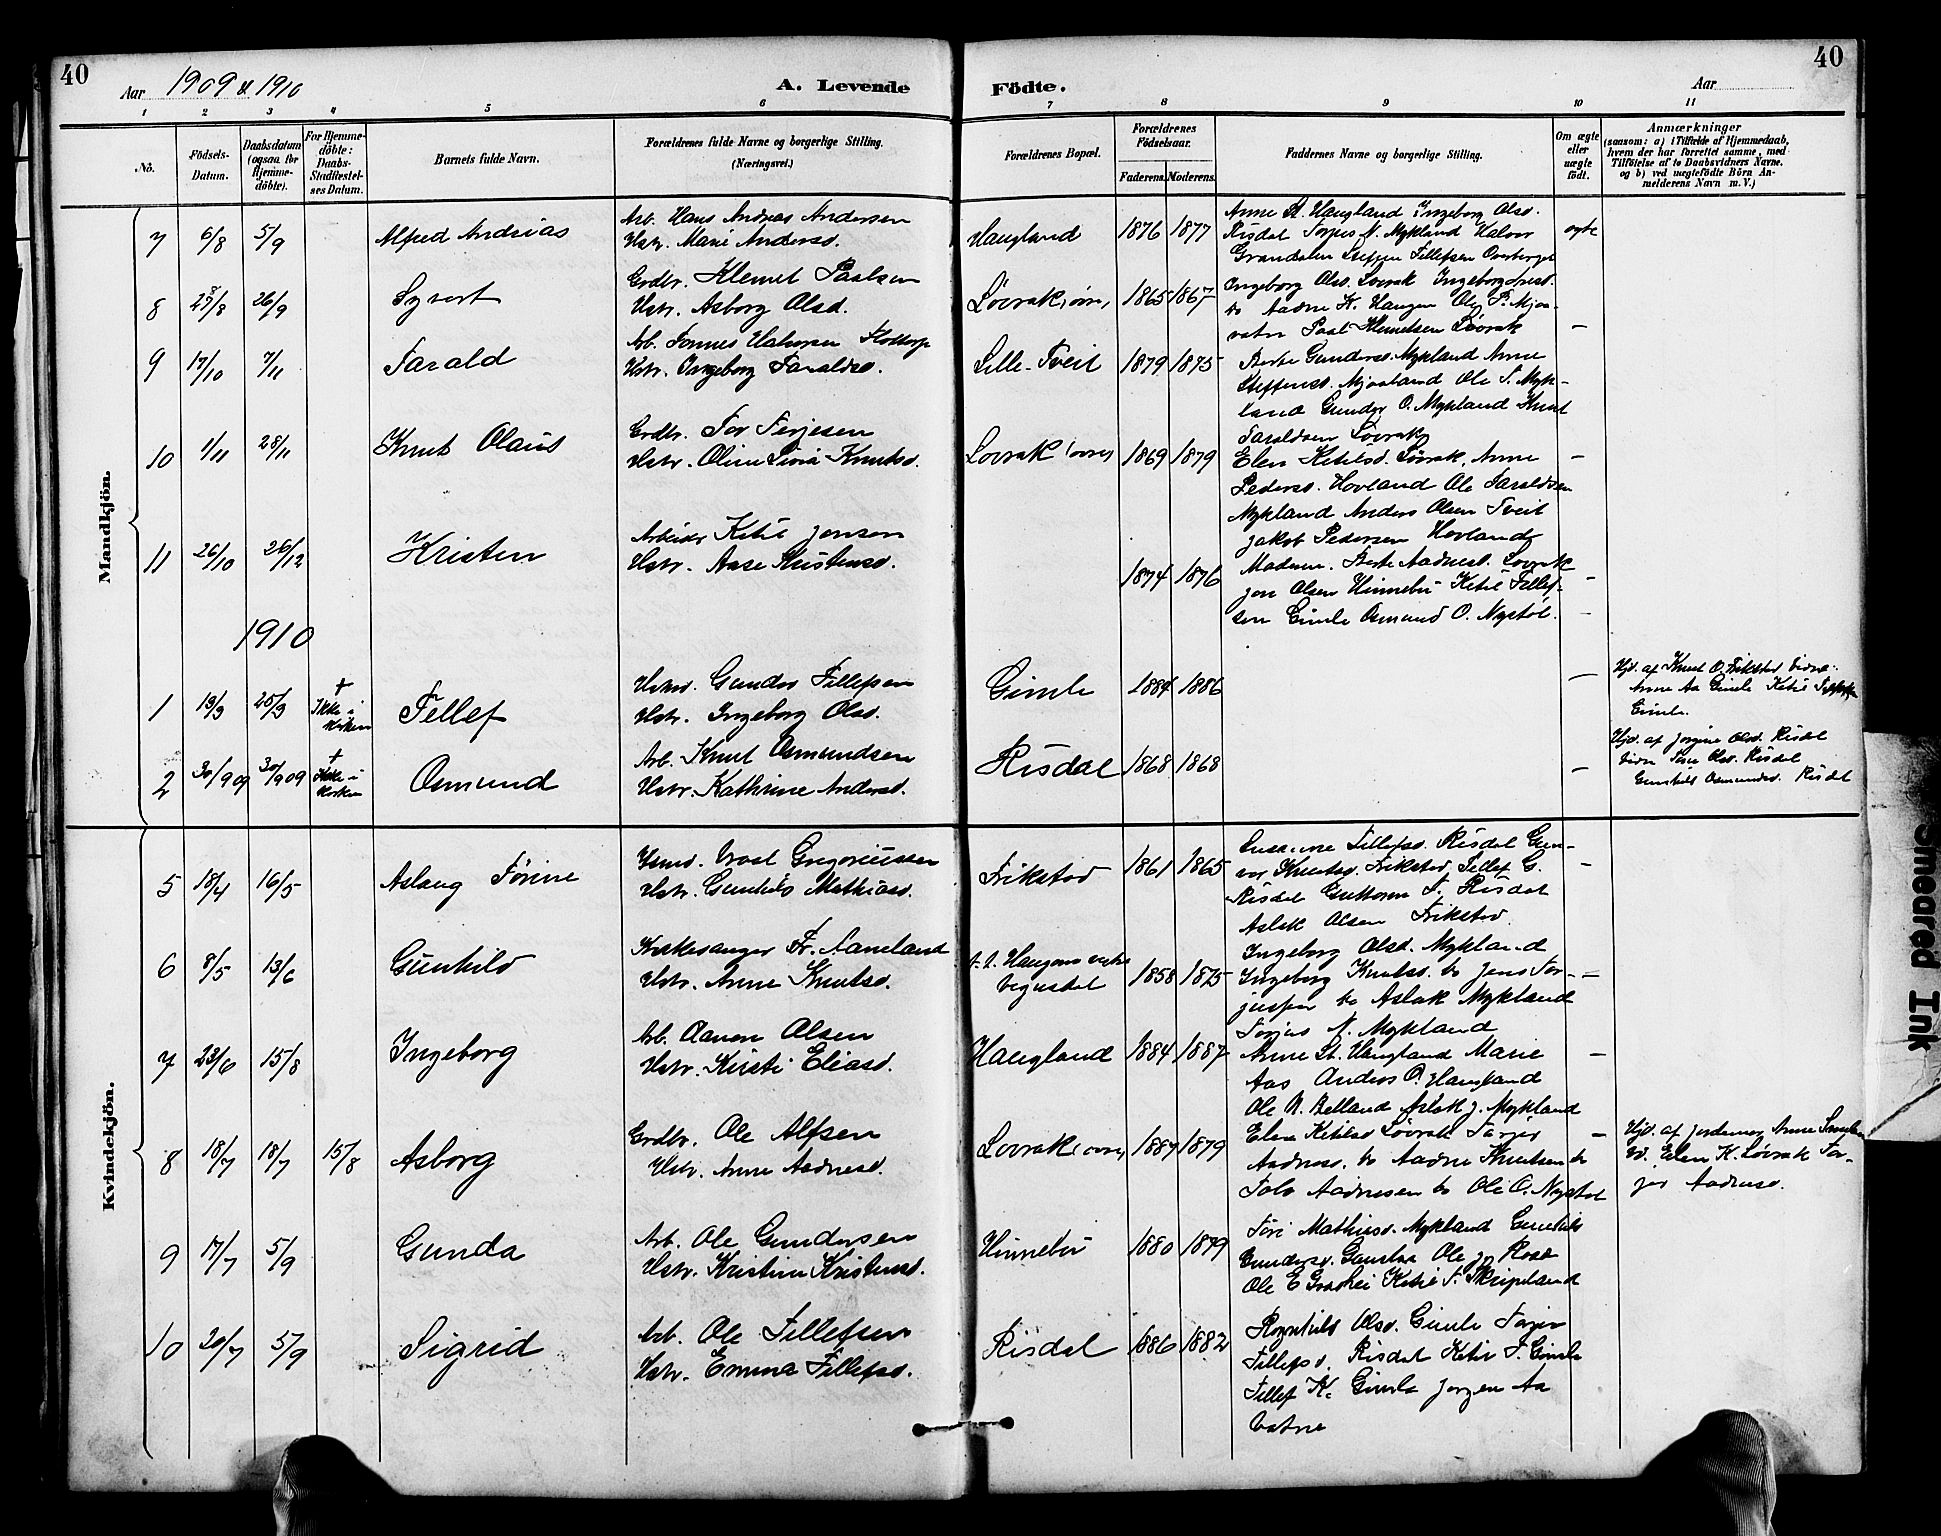 40
Aar 1909 & 1910
A. Levende
Födte.
Aar
40
1 2 3 4 5 6 7 8 9 10 11
No.
Födsels-
Datum.
Daabsdatum
(ogsaa for
Hjemme-
döbte).
For Hjemme-
döbte:
Daabs-
Stadfæstel-
ses Datum.
Barnets fulde Navn.
Forældrenes fulde Navne og borgerlige Stilling.
(Næringsvei.)
Forældrenes Bopæl.
Forældrenes
Födselsaar.
Faderens. Moderens.
Faddernes Navne og borgerlige Stilling.
Om ægte
eller
uægte
födt.
Anmærkninger
(saasom: a) i Tilfælde af Hjemmedaab,
hvem der har forrettet samme, med
Tilföielse af to Daabsvidners Navne.
og b) ved uægtefödte Börn An-
melderens Navn m. V.)
Mandkjön.
7 6/8 5/9 Alfred Andreas
Arb. Hans Andreas Andersen
Hstr. Marie Andersd.
Haugland 1876 1877
Anne St. Haugland Ingeborg Olsd.
Risdal Torjus N. Mykland Halvor
Grandalen Steffen Tellefsen
ægte
8 26/9 Syvert
Grdbr. Klemet Paalsen
Hstr. Asborg Olsd.
Løvrak, øvre, 1865 1867
Ingeborg Olsd. Løvrak Ingeborg
do Aadne K. Haugen Ole P. Mjaa-
vatn Paal Klemetsen Løvrak
–
9 17/10 7/11 Tarald
Arb. Tønnes Halvorsen
Hstr. Ingeborg Taraldsd.
Lille-Tveit 1879 1875
Berte Gundersd. Mykland Anne
Steffensd. Mjaaland Ole T. Myk-
land Gunder O. Mykland Knut
Taraldsen Løvrak
10 1/11 28/11 Knut Olaus
Grdbr. Tor Terjesen
Hstr. Oline Sivia Knutsd.
Løvrak (øvre) 1869 1879
Elen Ketilsd. Løvrak, Anne
Pedersd. Hovland Ole Taraldsen
Mykland Anders Olsen Tveit
Jakob Pedersen Hovland
–
11 26/10 26/12 Kristen
Arbeider Ketil Jonsen
Hstr. Aase Kristensd.
1874 1876
Moderen. Berte Aadnesd. Løvrak
Jon Olsen Hinnebu Ketil Tellef-
sen Gimle Osmund O. Nystøl.
–
–
1910
1 13/3 25/3 † Ikke i kirken Tellef
Hsmd. Gunder Tellefsen
Hstr. Ingeborg Olsd.
Gimle 1884 1886
–
Hjd. af Knut O. Frikstad Vidne:
Anne Aa Gimle Ketil
Gimle.
2 30/9 09 30/9 09 † Ikke i kirken Osmund
Arb. Knut Osmundsen
Hstr. Kathrine Andersd.
Risdal 1868 1868
–
Hjd. af Jorgine Olsd. Risdal
Vidn Olsd. Risdal
Gunhild Osmundsd. Risdal
Kvindekjön.
5 18/4 16/5 Aslaug Tørine
Hsmd. Vraal Gregoriussen
Hstr. Gunhild Mathiasd.
Frikstad 1861 1865
Susanne Tellefsd. Risdal Gun-
vor Knutsd. Frikstad, Tellef G.
Risdal Guttorm T. Risdal
Aslak Olsen Frikstad
–
6 8/5 13/6 Gunhild
Kirkesanger Fr. Aaneland
Hstr. Anne Knutsd.
Haugens
Vegusdal 1858 1875
Ingeborg Olsd. Mykland
Ingeborg Knutsd. do Jens Tor-
jussen do Aslak Mykland
Torjus N. Mykland
–
7 23/6 15/8 Ingeborg
Arb. Aanon Olsen
Hstr. Kirsti Eliasd.
Haugland 1884 1887
Anne St. Haugland Marie
Aas Anders O. Haugland
Ole N. Belland Aslak J. Mykland
–
8 18/7 18/7 15/8 Asborg
Grdbr. Ole Alfsen
Hstr. Anne Aadnesd.
Løvrak (øvre) 1887 1879
Elen Ketilsd Løvrak Torjer
Aadnesd. do Aadne Knutsen do
Tolv Aadnesen do Ole O. Nystøl
–
Hjd. af Jordemor Anne
Vd. Elen K. Løvrak Tor-
jer Aadnesd.
9 17/7 5/9 Gunda
Arb. Ole Gundersen
Hstr. Kristine Kristensd.
Hinnebu 1880 1879
Tøri Mathiesd. Mykland Gunhild
Gundersd. Ganstaa Ole J. Rosse
Ole E Grashei Ketil T. Skripeland
10 20/7 5/9 Sigrid
Arb. Ole Tellefsen
Hstr. Emma Tellefsd.
Risdal 1886 1882
Rognhild Olsd. Gimle Torjer
Tellefsd. Risdal Ketil T. Gimle
Tellef K. Gimle Jorgen Aa
Vatne
Smeared Ink